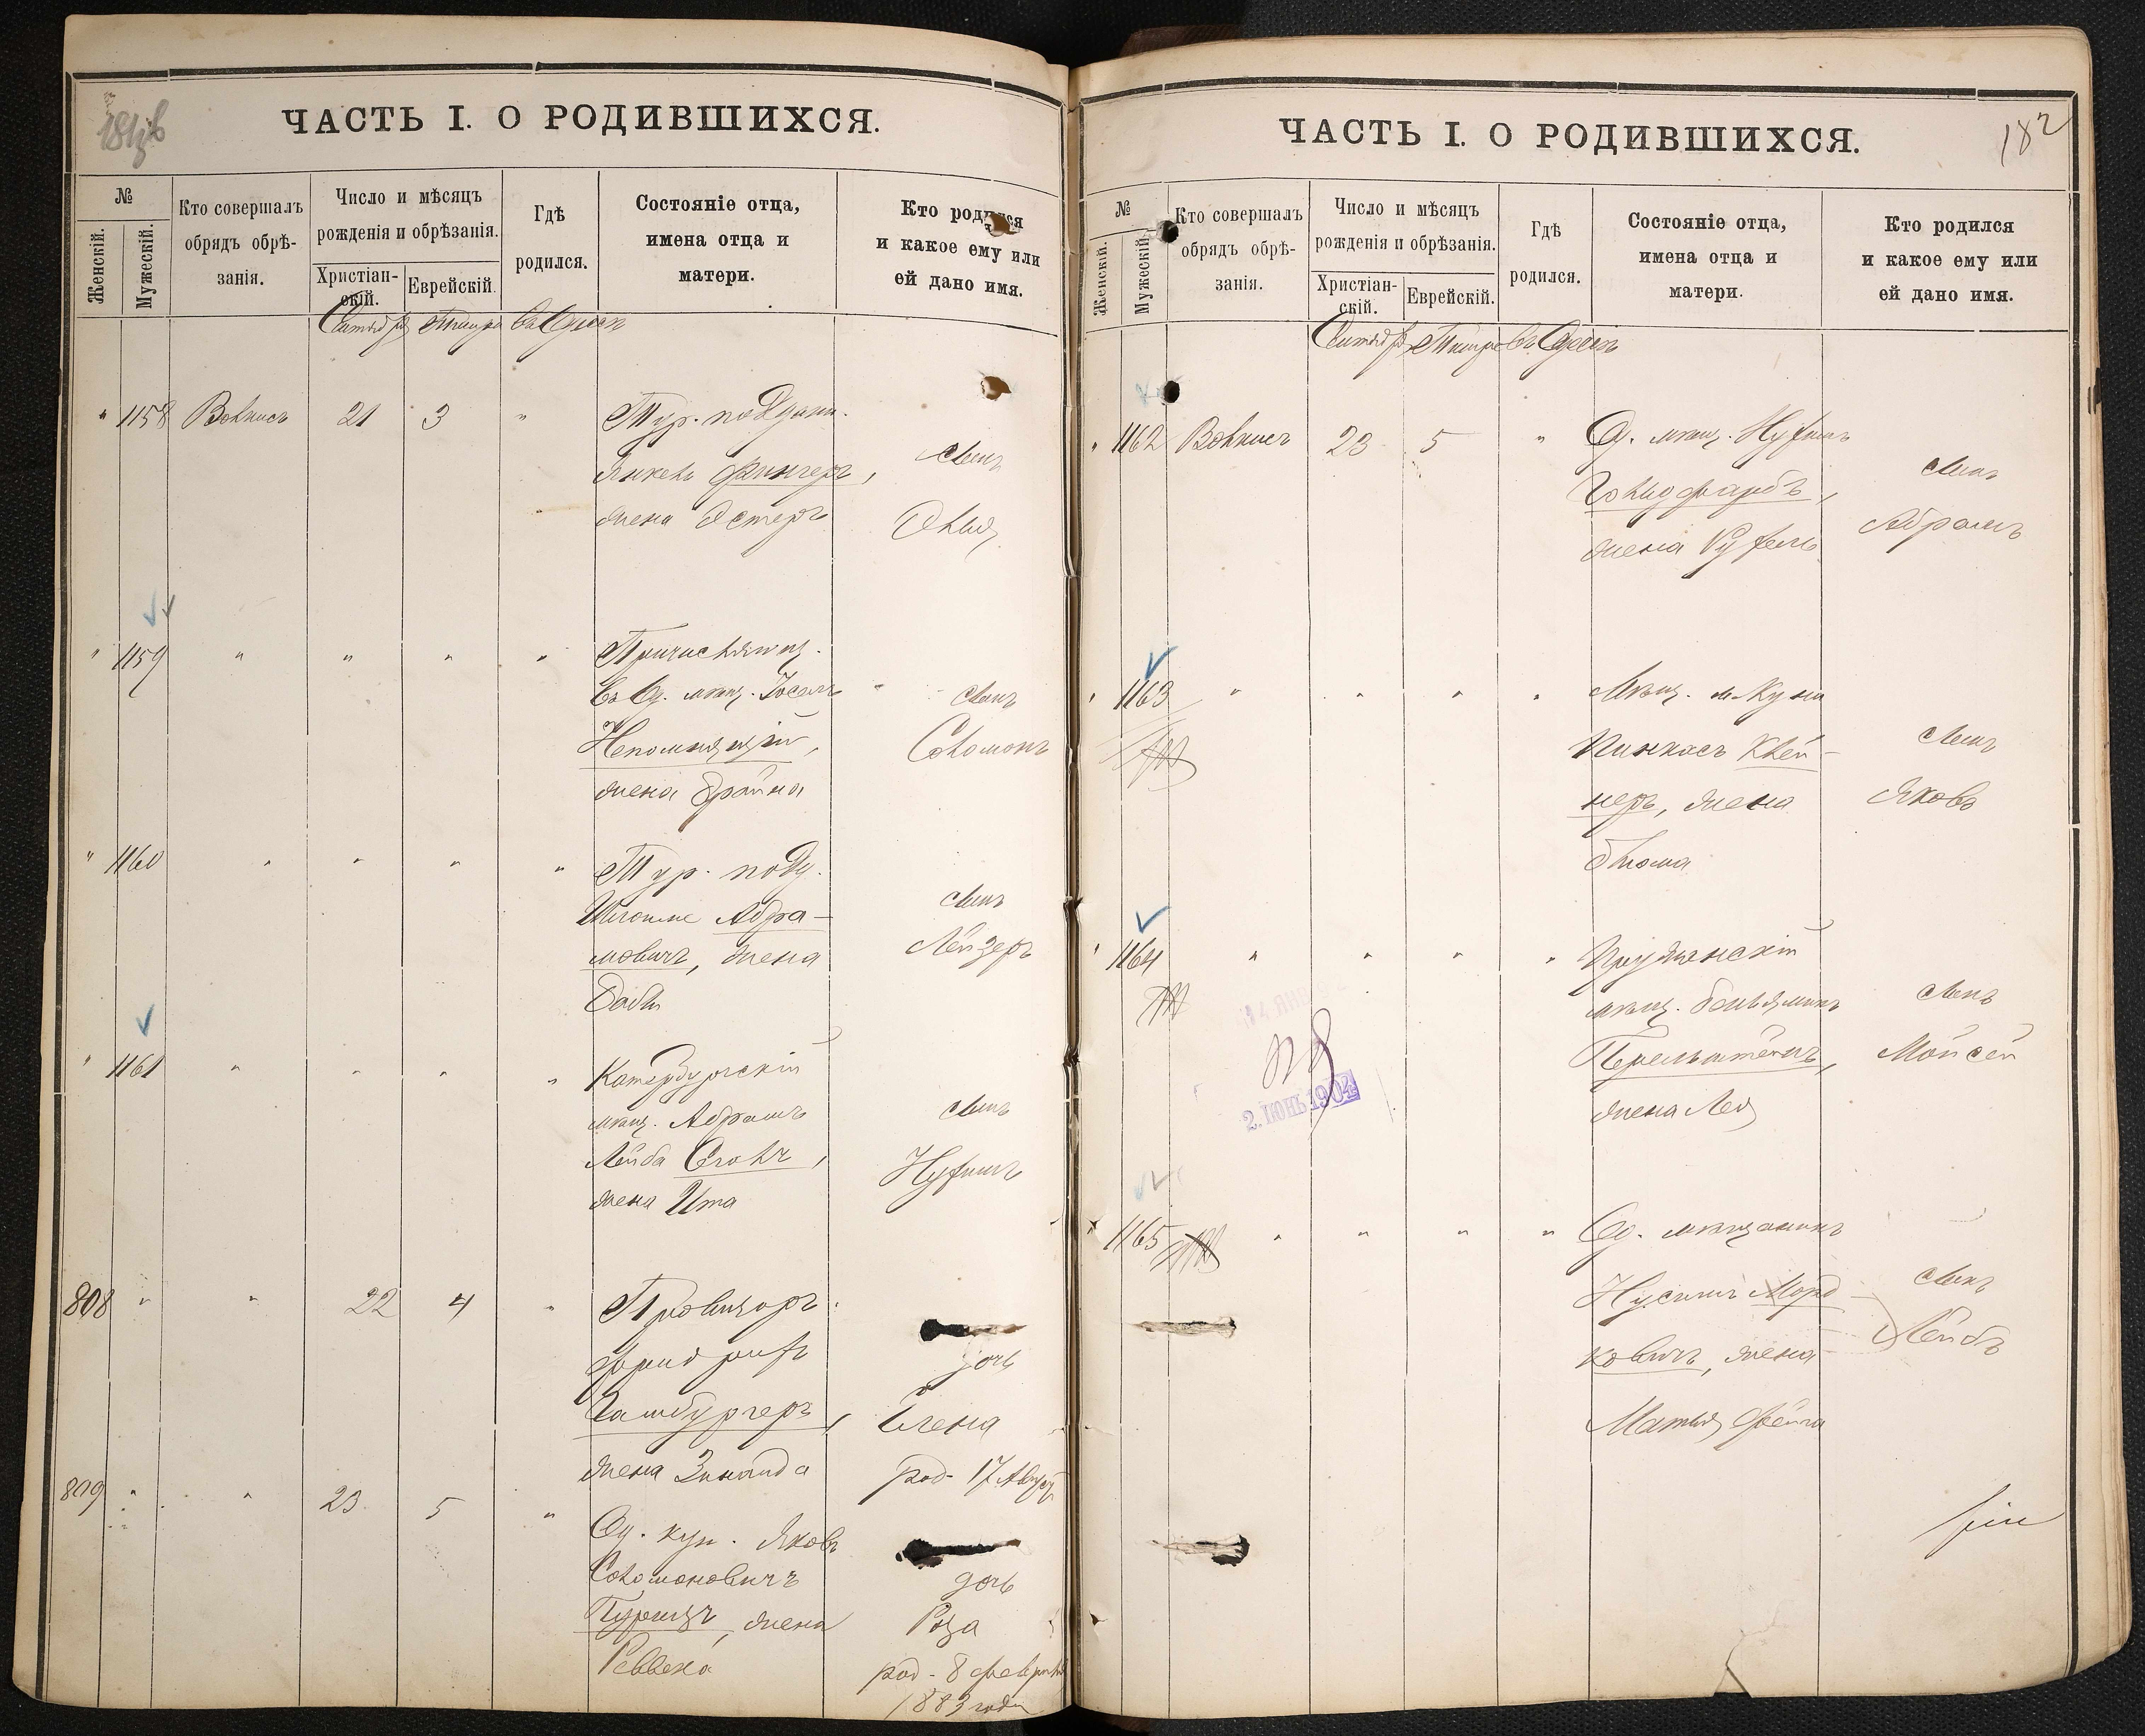 ЧАСТЬ I. О РОДИВШИХСЯ.
№
Женскій.
Мужескій.
Кто совершалъ
обрядъ обрѣ-
занія.
Число и мѣсяцъ
рожденія и обрѣзанія.
Христіан-
скій.
Еврейскій.
Гдѣ
родился.
Состояніе отца,
имена отца и
матери.
Кто родился
и какое ему или
ей дано имя.
Сентябр Тишри въ Одессѣ
" 1158 Волкисъ 21 3 " Тур. поддан.
Янкель Фингеръ,
жена Эстеръ
сынъ
" 1159 " " " " Причисляющ.
въ Од. мѣщ. Іосель
Непомнящій,
жена Брайна
сынъ
Соломонъ
" 1160 " " " " Тур. подд.
Шлойме Абра-
мовичъ, жена
Бабы
сынъ
Лейзеръ
" 1161 " " " " Катербургскій
мѣщ. Абрамъ
Лейба Стокъ,
жена Ита
сынъ
Нухимъ
808 " " 22 4 " Провизоръ
Фридрихъ
Гамбургеръ,
жена Зинаида
дочь
Елена
род. 17 Август
809 " " 23 5 " Од. куп. Яковъ
Соломоновичъ
Пурицъ, жена
Ревекка
дочь
Роза
род. 8 февраля
1883 года
ЧАСТЬ I. О РОДИВШИХСЯ.
182
№
Женскій.
Мужескій.
Кто совершалъ
обрядъ обрѣ-
занія.
Число и мѣсяцъ
рожденія и обрѣзанія.
Христіан-
скій.
Еврейскій.
Гдѣ
родился.
Состояніе отца,
имена отца и
матери.
Кто родился
и какое ему или
ей дано имя.
Сентябр Тишри въ Одессѣ
" 1162 Волкисъ 23 5 " Од. мѣщ. Нухимъ
Гольдфарбъ,
жена Рухель
сынъ
Абрамъ
" 1163 " " " " Мѣщ. м. Куни
Пинхасъ Клей-
неръ, жена
Блюма
сынъ
Яковъ
" 1164 " " " " Пружанскій
мѣщ. Беньяминъ
Перельштейнъ,
жена Лея
сынъ
Мойсей
2. ІЮНЬ 1904
" 1165 " " " " Од. мѣщанинъ
Нусинъ Морд-
ковичъ, жена
Матля Фейга
сынъ
Лейбъ